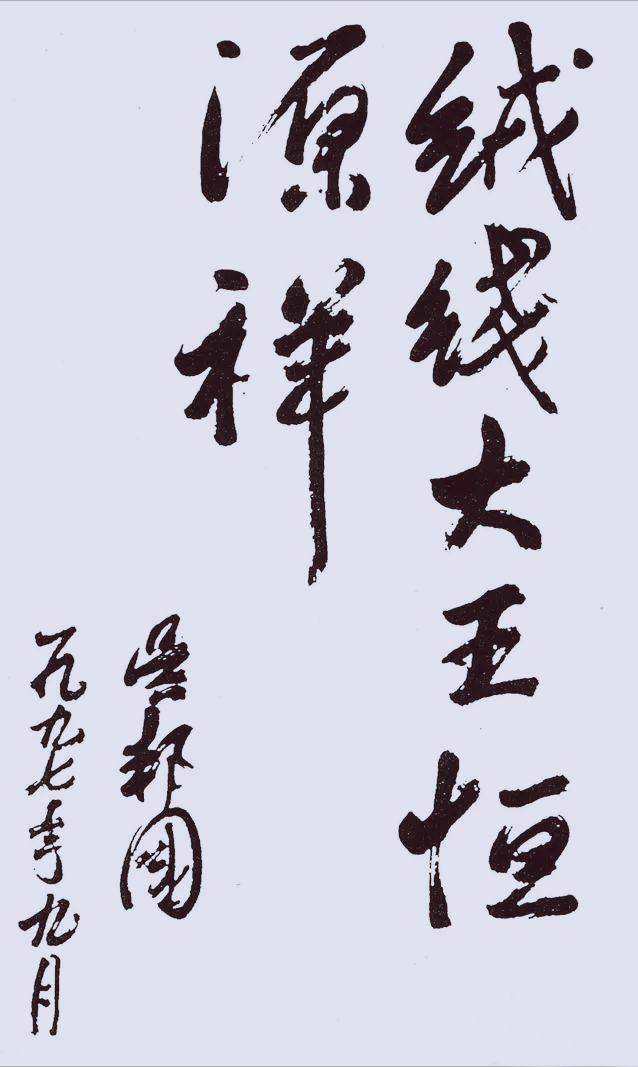 绒线大王恒
源祥
吴邦国
一九九七年九月